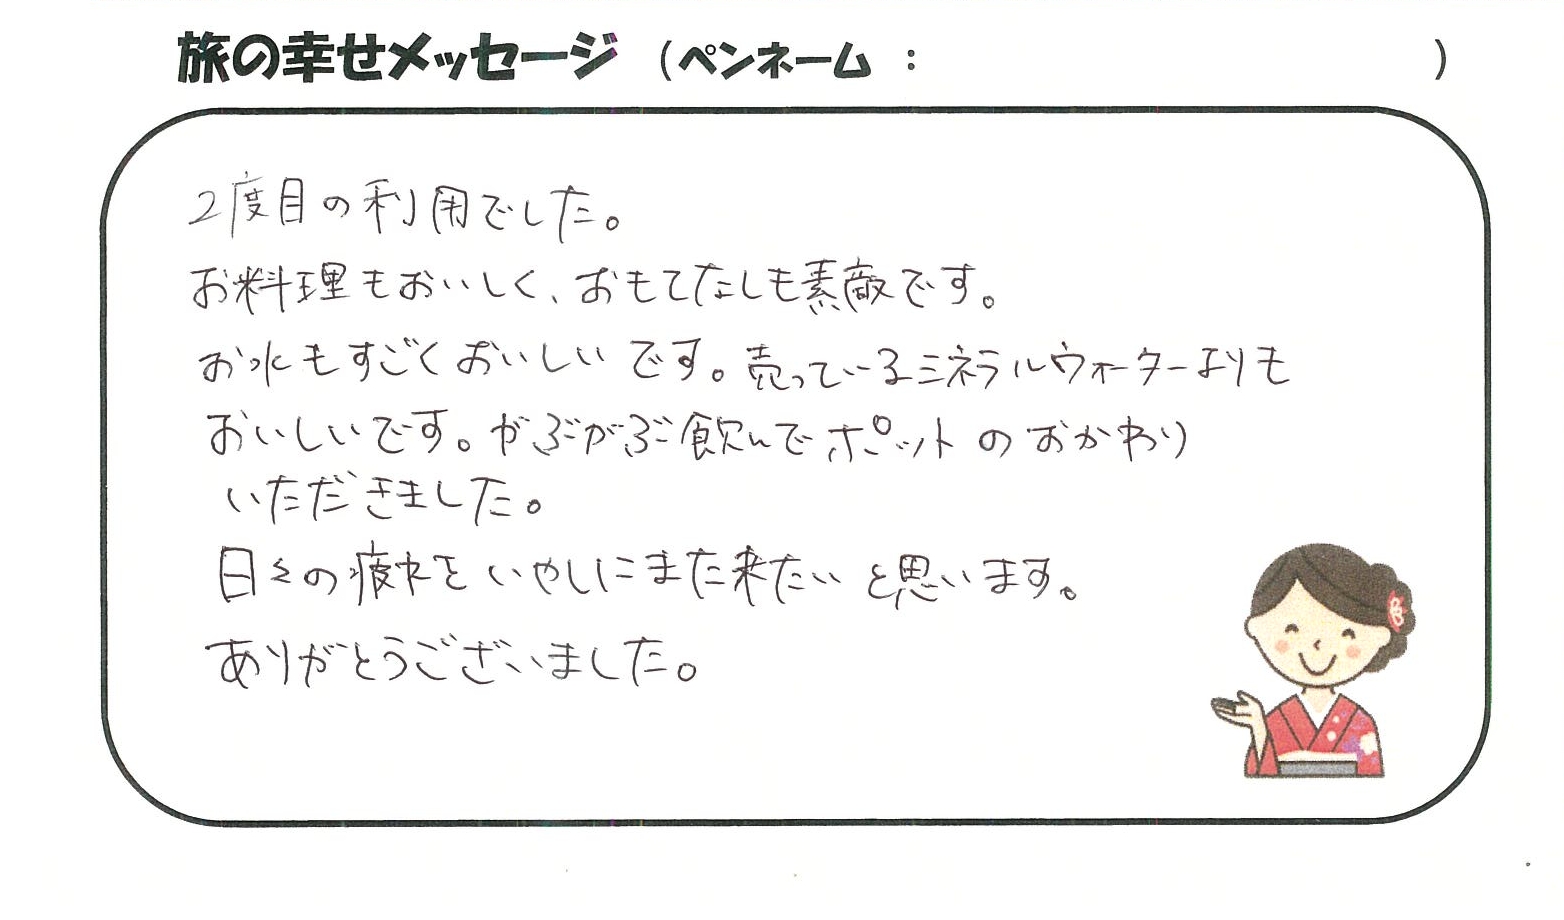 旅の幸せメッセージ (ペンネーム : )
2度目の利用でした。
お料理もおいしく、おもてなしも素敵です。
お水もすごくおいしいです。売っているミネラルウォーターよりも
おいしいです。がぶがぶ飲んでポットのおかわり
いただきました。
日々の疲れをいやしにまた来たいと思います。
ありがとうございました。